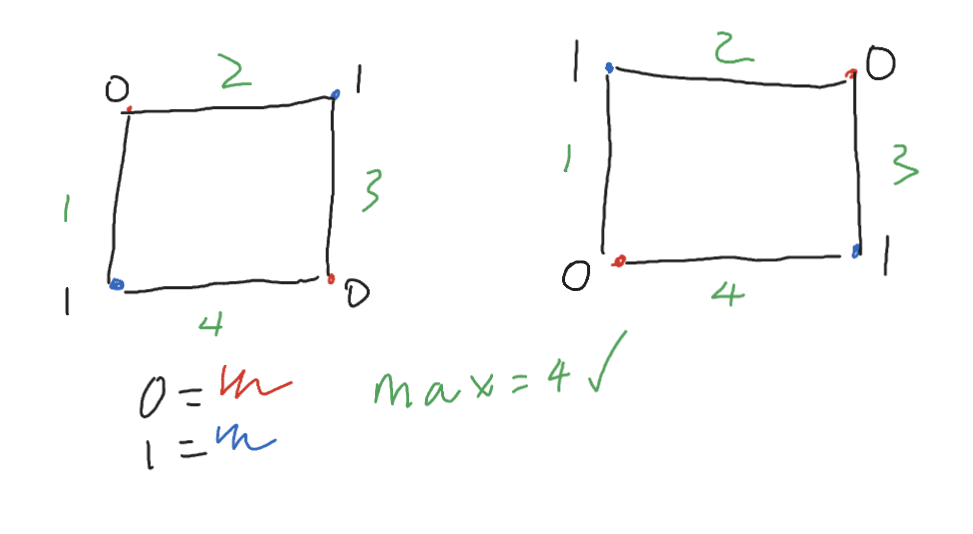 0 2 1
1 3
1 4 0
1 2 0
1 3
0 4 1
0 =
1 =
max = 4 ✓